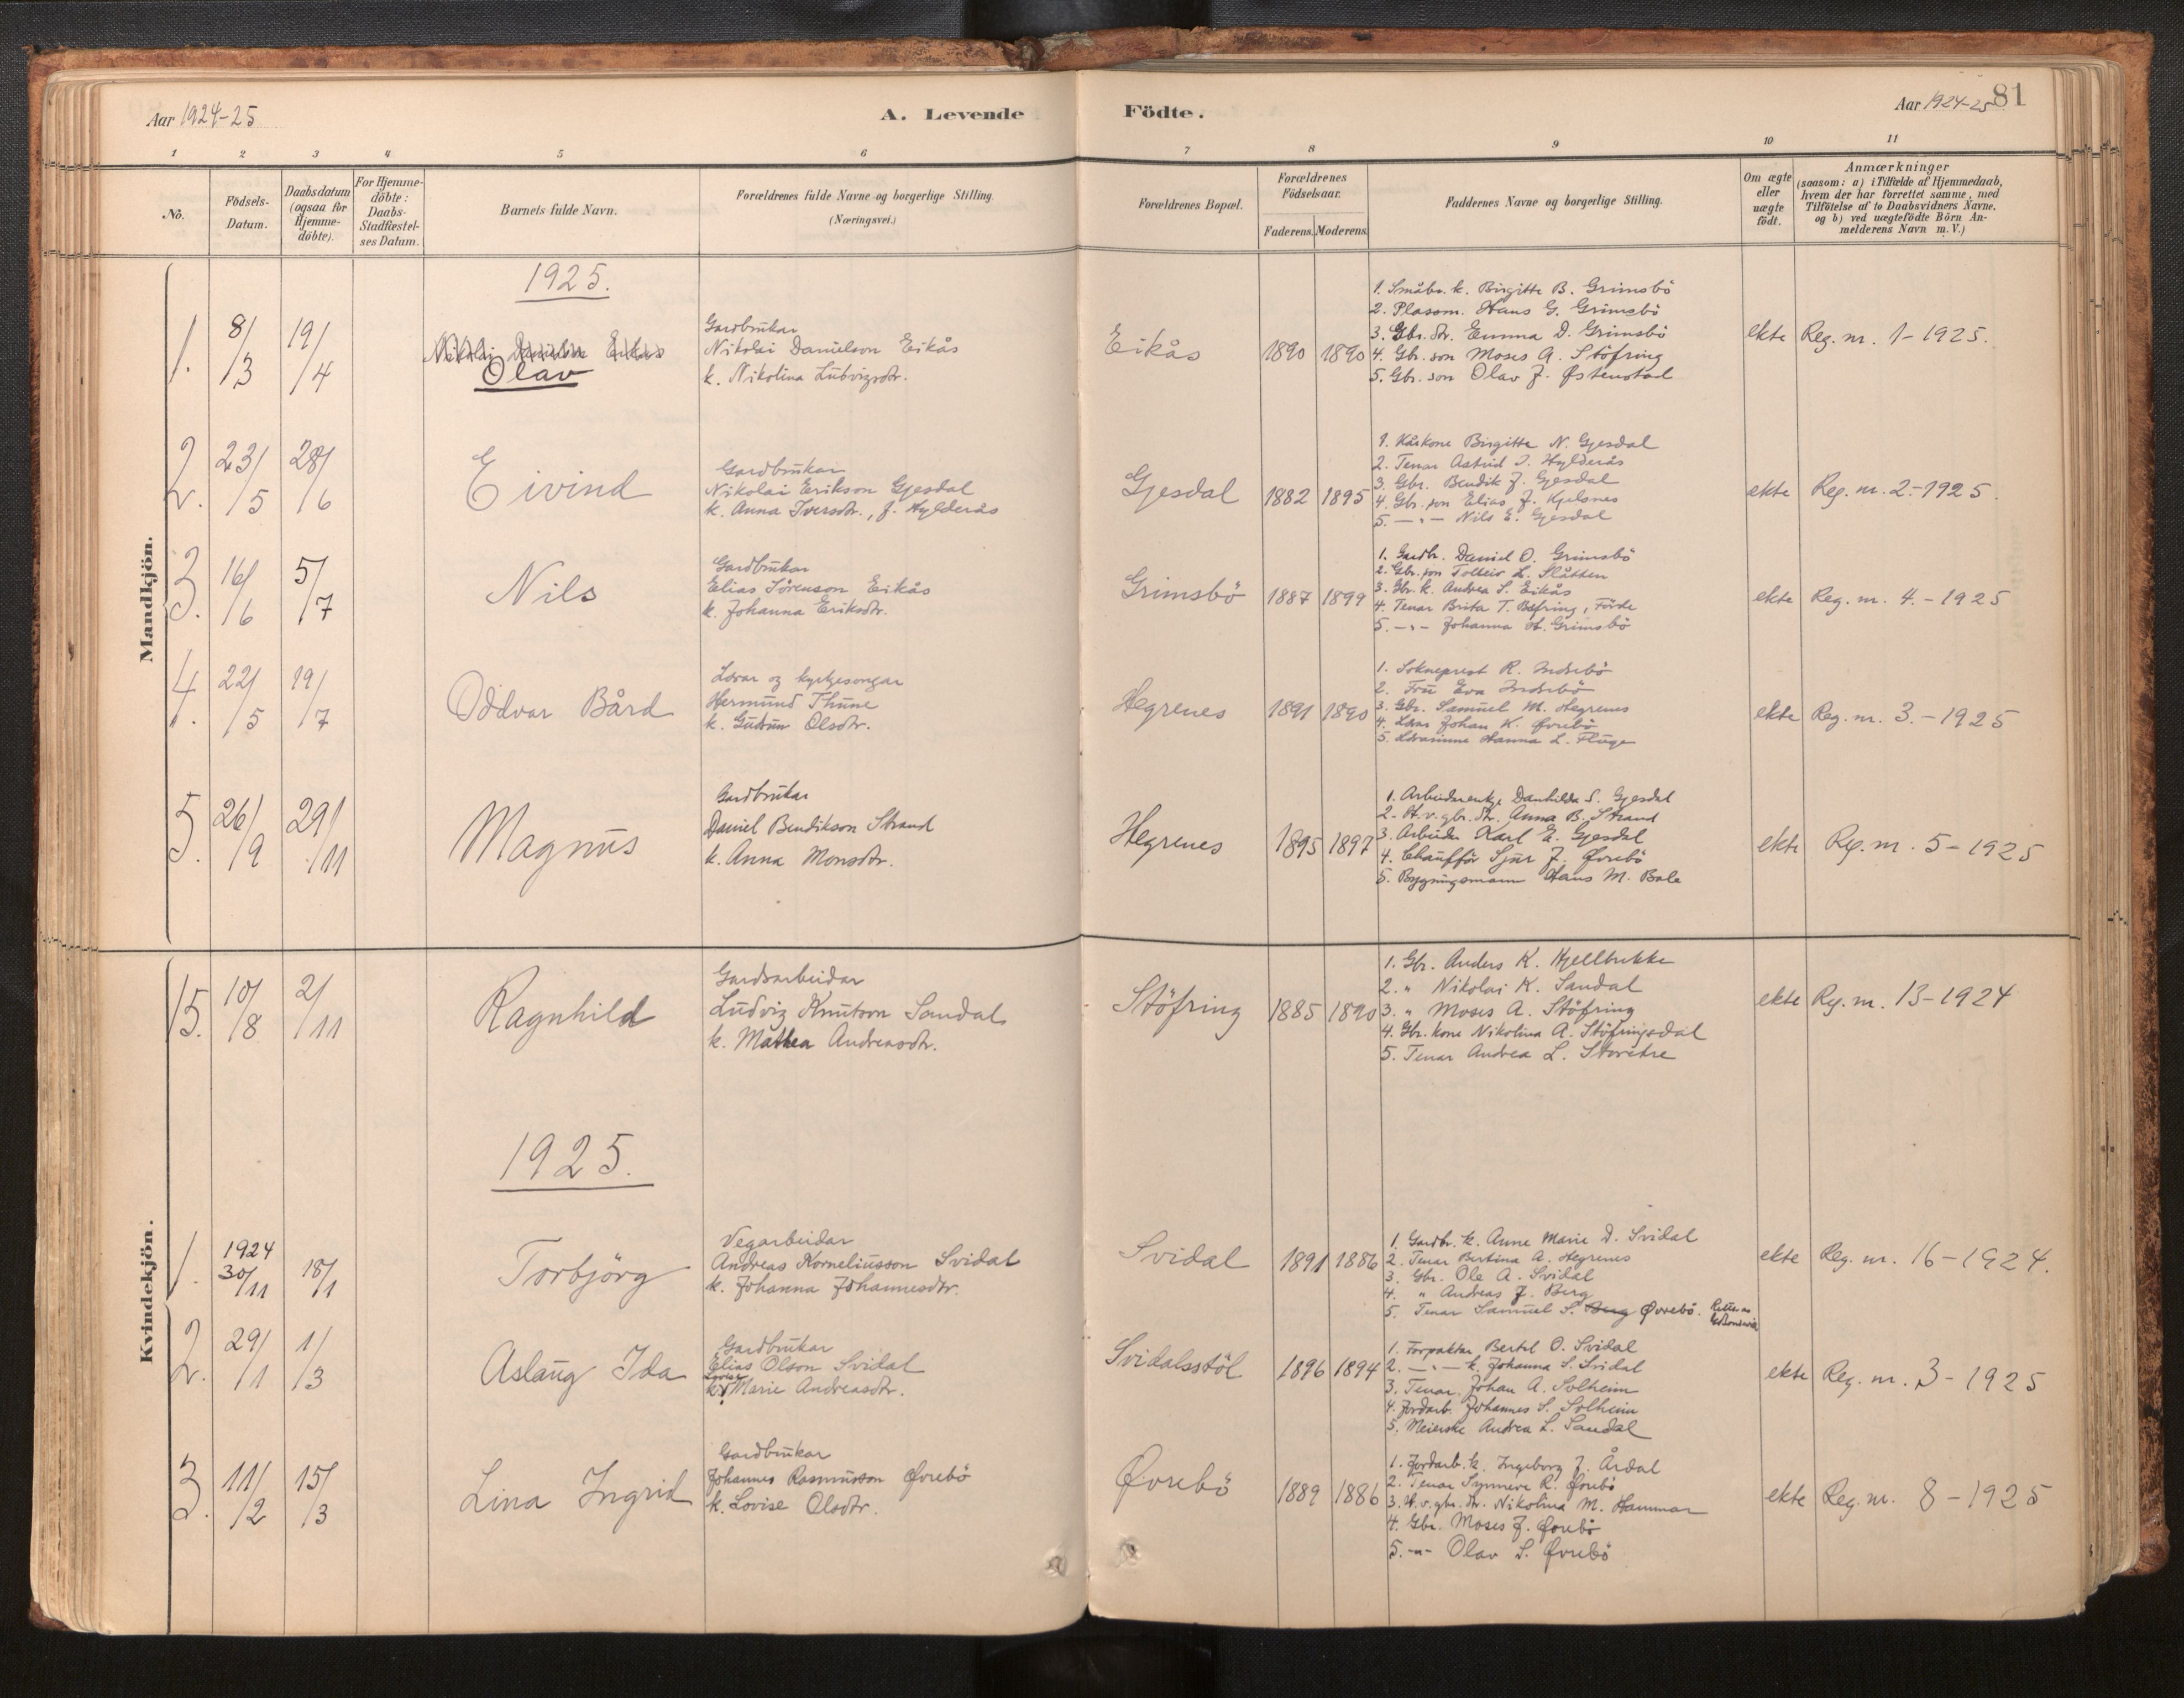 Aar 1924-25
A. Levende
Födte.
Aar 1924-25
81
1 2 3 4 5 6 7 8 9 10 11
No.
Födsels-
Datum.
Daabsdatum
(ogsaa for
Hjemme-
döbte).
For Hjemme-
döbte:
Daabs-
Stadfæstel-
ses Datum.
Barnets fulde Navn.
Forældrenes fulde Navne og borgerlige Stilling.
(Næringsvei.)
Forældrenes Bopæl.
Forældrenes
Födselsaar.
Faderens. Moderens.
Faddernes Navne og borgerlige Stilling.
Om ægte
eller
uægte
födt.
Anmærkninger
(saasom: a) i Tilfælde af Hjemmedaab,
hvem der har forrettet samme, med
Tilföielse af to Daabsvidners Navne,
og b) ved uægtefödte Börn An-
melderens Navn m. V.)
Mandkjön.
1925.
1.
8/3
19/4
Nikolai Danielson Eikås
Olav
Gardbrukar
Nikolai Danielson Eikås
k. Nikolina Ludvigsdtr.
Eikås
1890 1890
1. Småbr. k. Birgitte B. Grimsbö
2. Plasom. Hans G. Grimsbö
3. Gbr. dtr. Emma D. Grimsbö
4. Gbr. son Moses A. Stöfring
5. Gbr. son Olav J. Østenstad
ekte
Reg. nr. 1-1925.
2.
23/5
28/6
Eivind
Gardbrukar
Nikolai Erikson Gjesdal
k. Anna Iversdtr., f. Hylderås
Gjesdal
1882 1895
1. Kårkone Birgitte N. Gjesdal
2. Tenar Astrid I. Hylderås
3. Gbr. Bendik J. Gjesdal
4. Gbr. son Elias J. Kjelsnes
5. —„— Nils E. Gjesdal
ekte
Reg. nr. 2.-1925.
3.
16/6
5/7
Nils
Gardbrukar
Elias Sörenson Eikås
k. Johanna Eriksdtr.
Grimsbö
1887 1899
1. Gardbr. Daniel O. Grimsbö
2. Gbr. son Tolleiv L. Slåtten
3. Gbr. k. Andrea S. Eikås
4. Tenar Brita T. Bæfring, Förde
5. —„— Johanna H. Grimsbö
ekte
Reg. nr. 4.-1925
4.
22/5
19/7
Oddvar Bård
Lærar og kyrkjesongar
Hermund Thune
k. Gudrun Olsdtr.
Hegrenes
1891 1890
1. Sokneprest R. Indrebö
2. Fru Eva Indrebö
3. Gbr. Samuel M. Hegrenes
4. Lærar Johan K. Øvrebö
5. Lærarinne Hanna L. Fluge
ekte
Reg. nr. 3.-1925
5.
26/9
29/11
Magnus
Gardbrukar
Daniel Bendikson Strand
k. Anna Monsdtr.
Hegrenes
1895 1897
1. Arbeidarenkje Danhilda S. Gjesdal
2. H.v. gbr. dtr. Anna B. Strand
3. Arbeidar Karl E. Gjesdal
4. Chauffør Sjur J. Øvrebö
5. Bygningsmann Hans M. Bale
ekte
Reg. nr. 5-1925
Kvindekjön.
15.
10/8
2/11
Ragnhild
Gardsarbeidar
Ludvig Knutson Sandal
k. Mathea Andreasdtr.
Stöfring
1885 1890
1. Gbr. Anders K. Kjellbrekke
2. „ Nikolai K. Sandal
3. „ Moses A. Stöfring
4. Gbr. kone Nikolina A. Stöfringsdal
5. Tenar Andrea L. Storetre
ekte
Reg. nr. 13-1924
1925.
1.
1924
30/11
18/1
Torbjörg
Vegarbeidar
Andreas Korneliusson Svidal
k. Johanna Johannesdtr.
Svidal
1891 1886
1. Gardbr. k. Anne Marie D. Svidal
2. Tenar Bertina A. Hegrenes
3. Gbr. Ole A. Svidal
4. „ Andreas J. Berg
5. Tenar Samuel S. Berg Øvrebö.
ekte
Reg. nr. 16-1924.
2.
29/1
1/3
Aslaug Ida
Gardbrukar
Elias Olson Svidal
Lovise
k. Marie Andreasdtr.
Svidalsstöl
1896 1894
1. Forpaktar Bertel O. Svidal
2. —„— k. Johanna S. Svidal
3. Tenar Johan A. Solheim
4. Jordarb. Johannes S. Solheim
5. Meierske Andrea L. Sandal
ekte
Reg. nr. 3-1925
3.
11/2
15/3
Lina Ingrid
Gardbrukar
Johannes Rasmusson Øvrebö
k. Lovise Olsdtr.
Øvrebö
1889 1886
1. Jordarb. k. Ingeborg J. Årdal
2. Tenar Synneve R. Øvrebö
3. H.v. gbr. dtr. Nikolina M. Hammar
4. Gbr. Moses J. Øvrebö
5. —„— Olav S. Øvrebö
ekte
Reg. nr. 8-1925